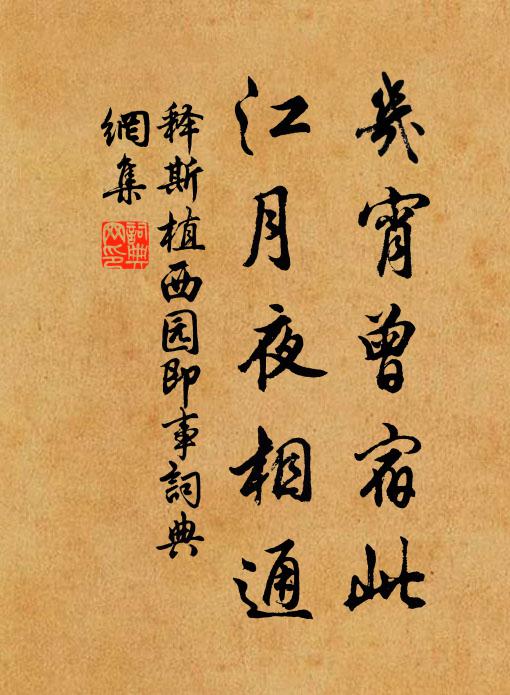 幾宵曾宿此
江月夜相通
释斯植西园即事詞典
網集
詞典
网印